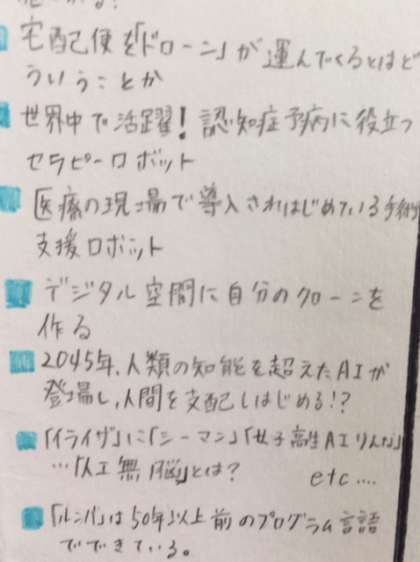 宅配便を「ドローン」が運んでくるとはど
ういうことか
世界中で活躍!認知症予病に役立つ
セラピーロボット
医療の現場で導入されはじめている手術
支援ロボット
デジタル空間に自分のクローンを
作る
2045年、人類の知能を超えたAIが
登場し、人間を支配しはじめる!?
「イライザ」に「シーマン」「女子高生AIりんな」
…「人工無脳」とは?
etc....
「ルンバ」は50年以上前のプログラム言語
でできている。